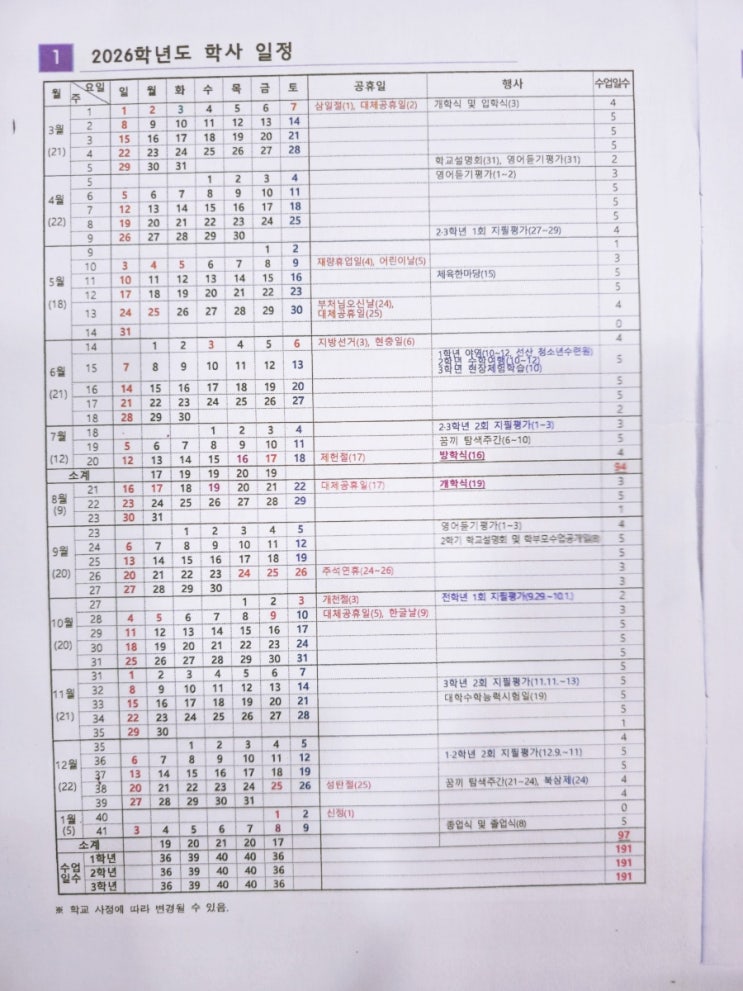 1 2026학년도 학사 일정
월 요일 주 일 월 화 수 목 금 토 공휴일 행사 수업일수
3월 (21)
1 1 2 3 4 5 6 7 삼일절(1), 대체공휴일(2) 개학식 및 입학식(3) 4
2 8 9 10 11 12 13 14 5
3 15 16 17 18 19 20 21 5
4 22 23 24 25 26 27 28 5
5 29 30 31 학교설명회(31), 영어듣기평가(31) 2
4월 (22)
5 1 2 3 4 영어듣기평가(1~2) 3
6 5 6 7 8 9 10 11 5
7 12 13 14 15 16 17 18 5
8 19 20 21 22 23 24 25 5
9 26 27 28 29 30 2·3학년 1회 지필평가(27~29) 4
5월 (18)
9 1 2 1
10 3 4 5 6 7 8 9 재량휴업일(4), 어린이날(5) 3
11 10 11 12 13 14 15 16 체육한마당(15) 5
12 17 18 19 20 21 22 23 5
13 24 25 26 27 28 29 30 부처님오신날(24), 대체공휴일(25) 4
14 31 0
6월 (21)
14 1 2 3 4 5 6 지방선거(3), 현충일(6) 4
15 7 8 9 10 11 12 13 1학년 야영(10~12, 선산 청소년수련원) 5
2학년 수학여행(10~12)
3학년 현장체험학습(10)
16 14 15 16 17 18 19 20 5
17 21 22 23 24 25 26 27 5
18 28 29 30 2
7월 (12)
18 1 2 3 4 2·3학년 2회 지필평가(1~3) 3
19 5 6 7 8 9 10 11 꿈끼 탐색주간(6~10) 5
20 12 13 14 15 16 17 18 제헌절(17) 방학식(16) 4
소계 17 19 19 20 19 94
8월 (9)
21 16 17 18 19 20 21 22 대체공휴일(17) 개학식(19) 3
22 23 24 25 26 27 28 29 5
23 30 31 1
9월 (20)
23 1 2 3 4 5 영어듣기평가(1~3) 4
24 6 7 8 9 10 11 12 2학기 학교설명회 및 학부모수업공개일 5
25 13 14 15 16 17 18 19 5
26 20 21 22 23 24 25 26 추석연휴(24~26) 3
27 27 28 29 30 3
10월 (20)
27 1 2 3 개천절(3) 전학년 1회 지필평가(9.29.~10.1.) 2
28 4 5 6 7 8 9 10 대체공휴일(5), 한글날(9) 3
29 11 12 13 14 15 16 17 5
30 18 19 20 21 22 23 24 5
31 25 26 27 28 29 30 31 5
11월 (21)
31 1 2 3 4 5 6 7 5
32 8 9 10 11 12 13 14 3학년 2회 지필평가(11.11.~13) 5
33 15 16 17 18 19 20 21 대학수학능력시험일(19) 5
34 22 23 24 25 26 27 28 5
35 29 30 1
12월 (22)
35 1 2 3 4 5 4
36 6 7 8 9 10 11 12 1·2학년 2회 지필평가(12.9.~11) 5
37 13 14 15 16 17 18 19 5
38 20 21 22 23 24 25 26 성탄절(25) 꿈끼 탐색주간(21~24), 북삼제(24) 4
39 27 28 29 30 31 4
1월 (5)
40 1 2 신정(1) 0
41 3 4 5 6 7 8 9 종업식 및 졸업식(8) 5
소계 19 20 21 20 17 97
수업 일수
1학년 36 39 40 40 36 191
2학년 36 39 40 40 36 191
3학년 36 39 40 40 36 191
※ 학교 사정에 따라 변경될 수 있음.